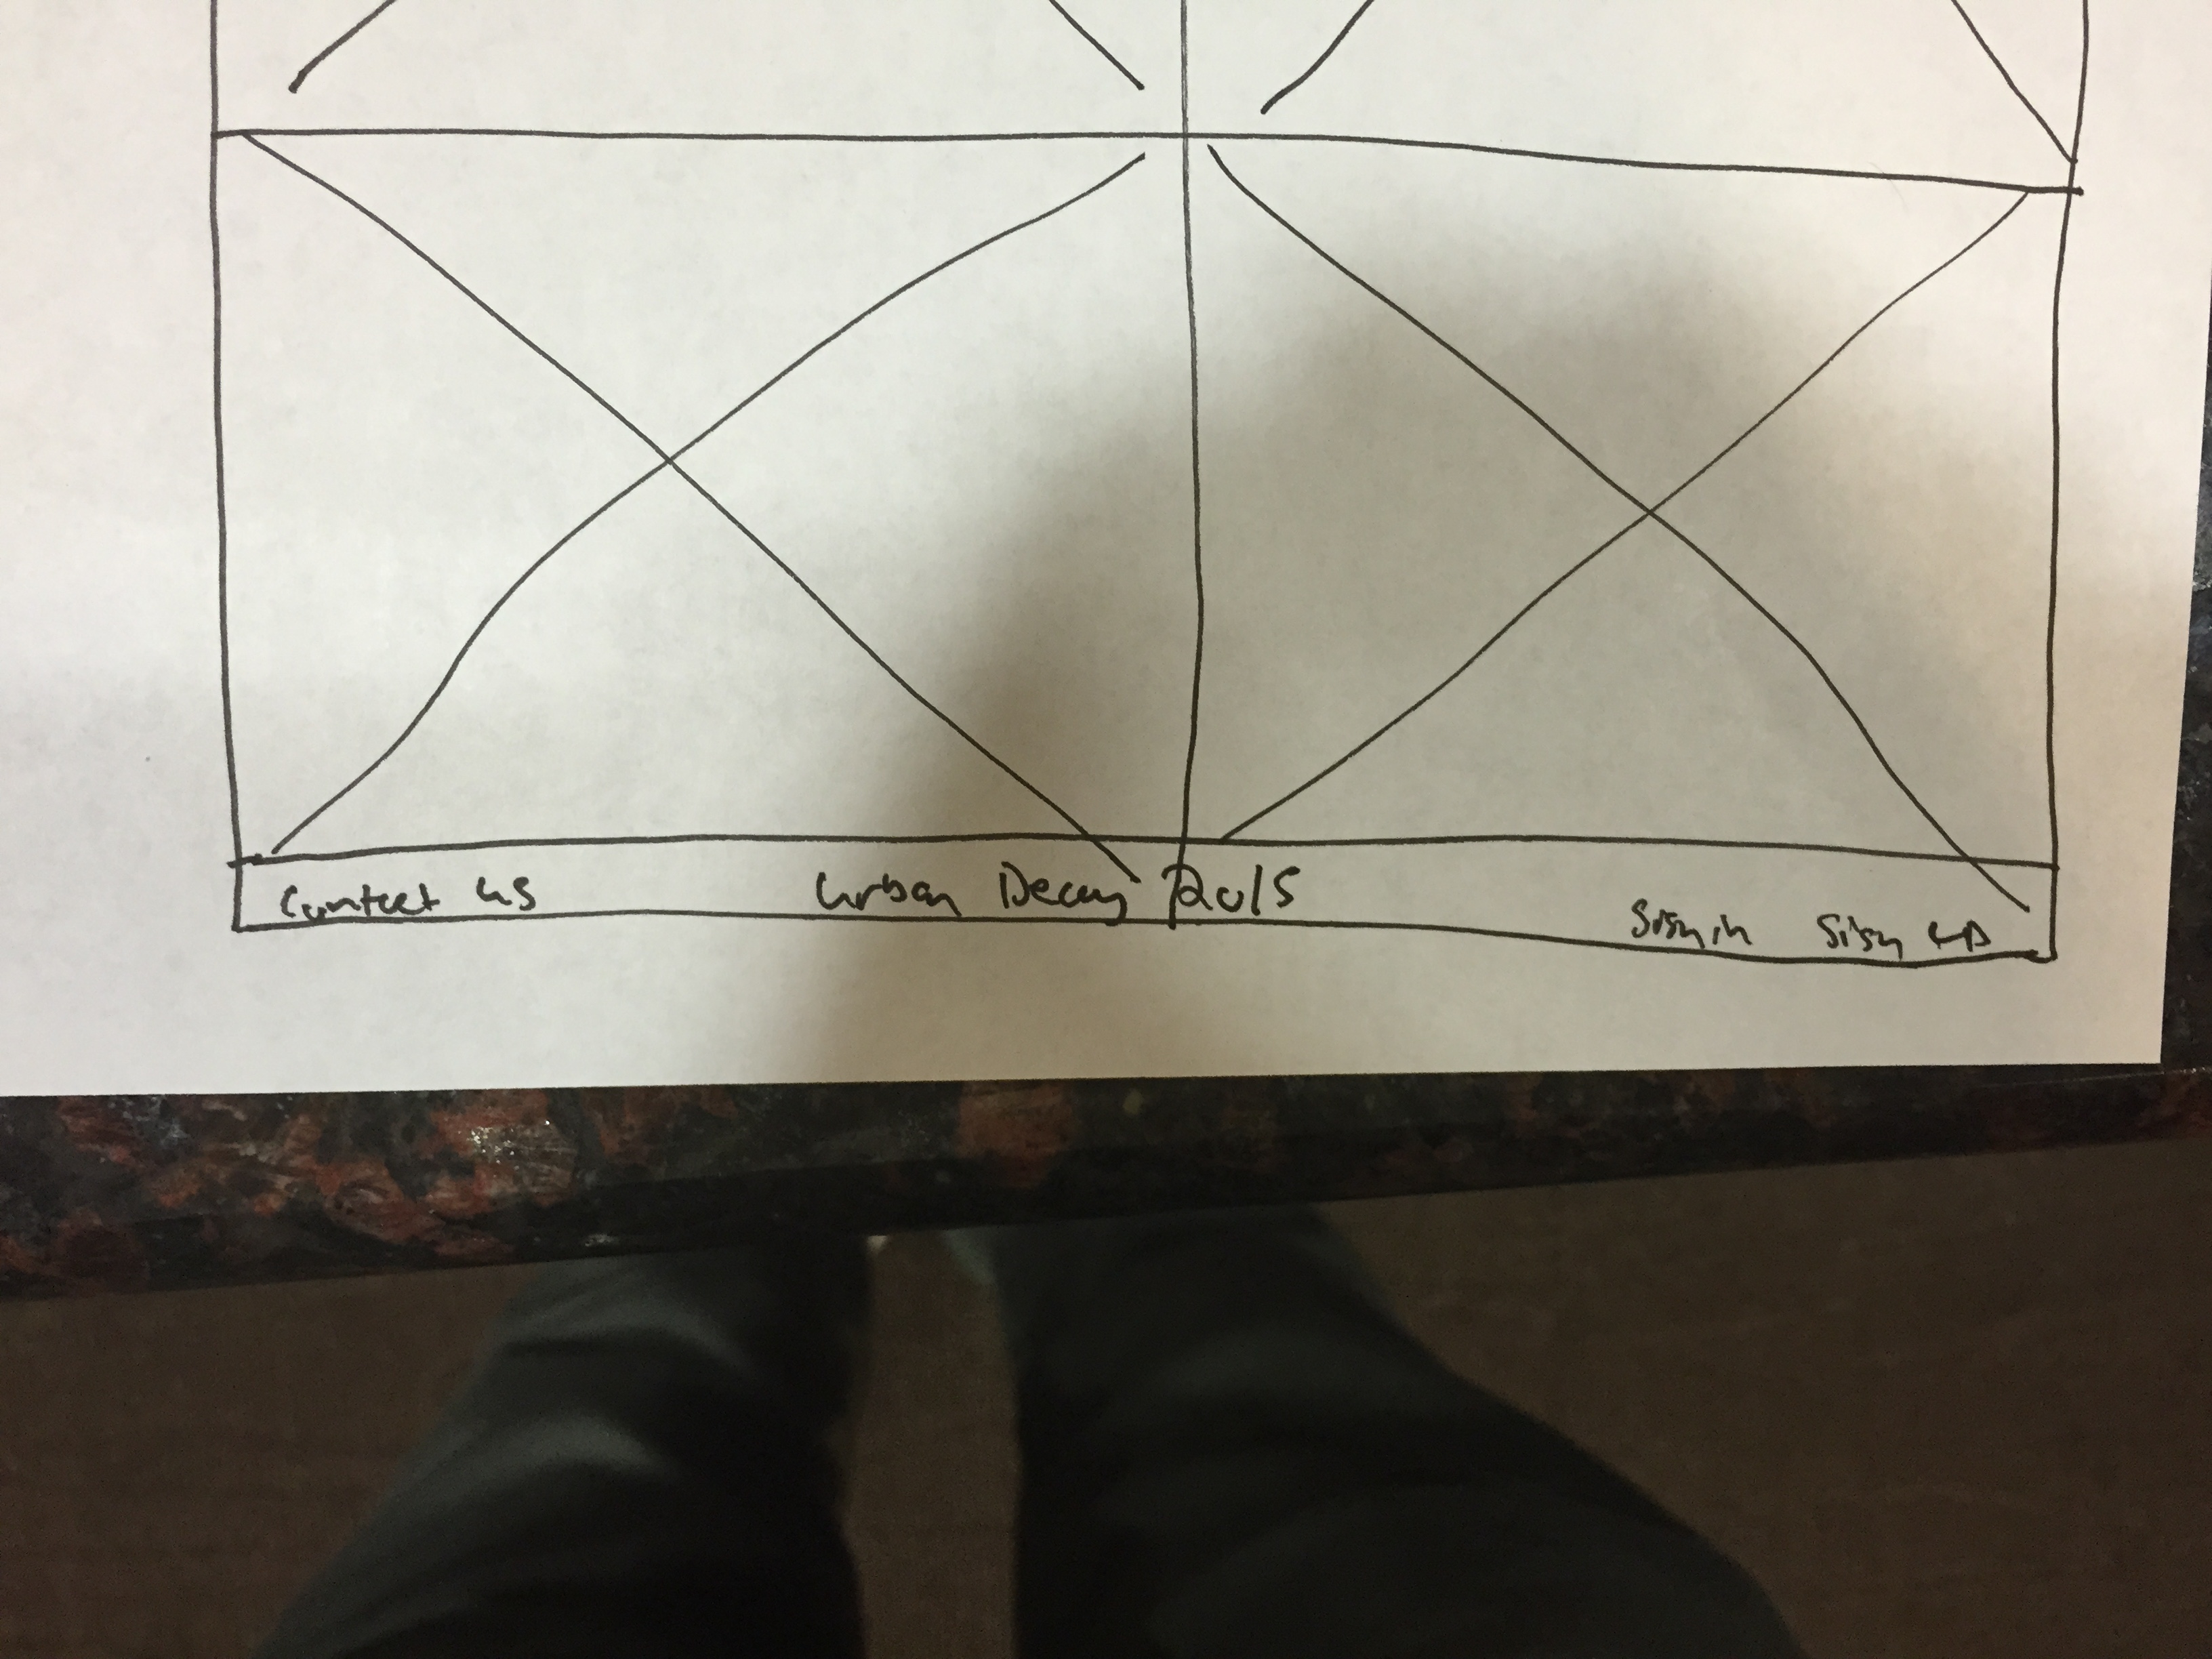 Contact us Urban Decay 2015 Sign in Sign up